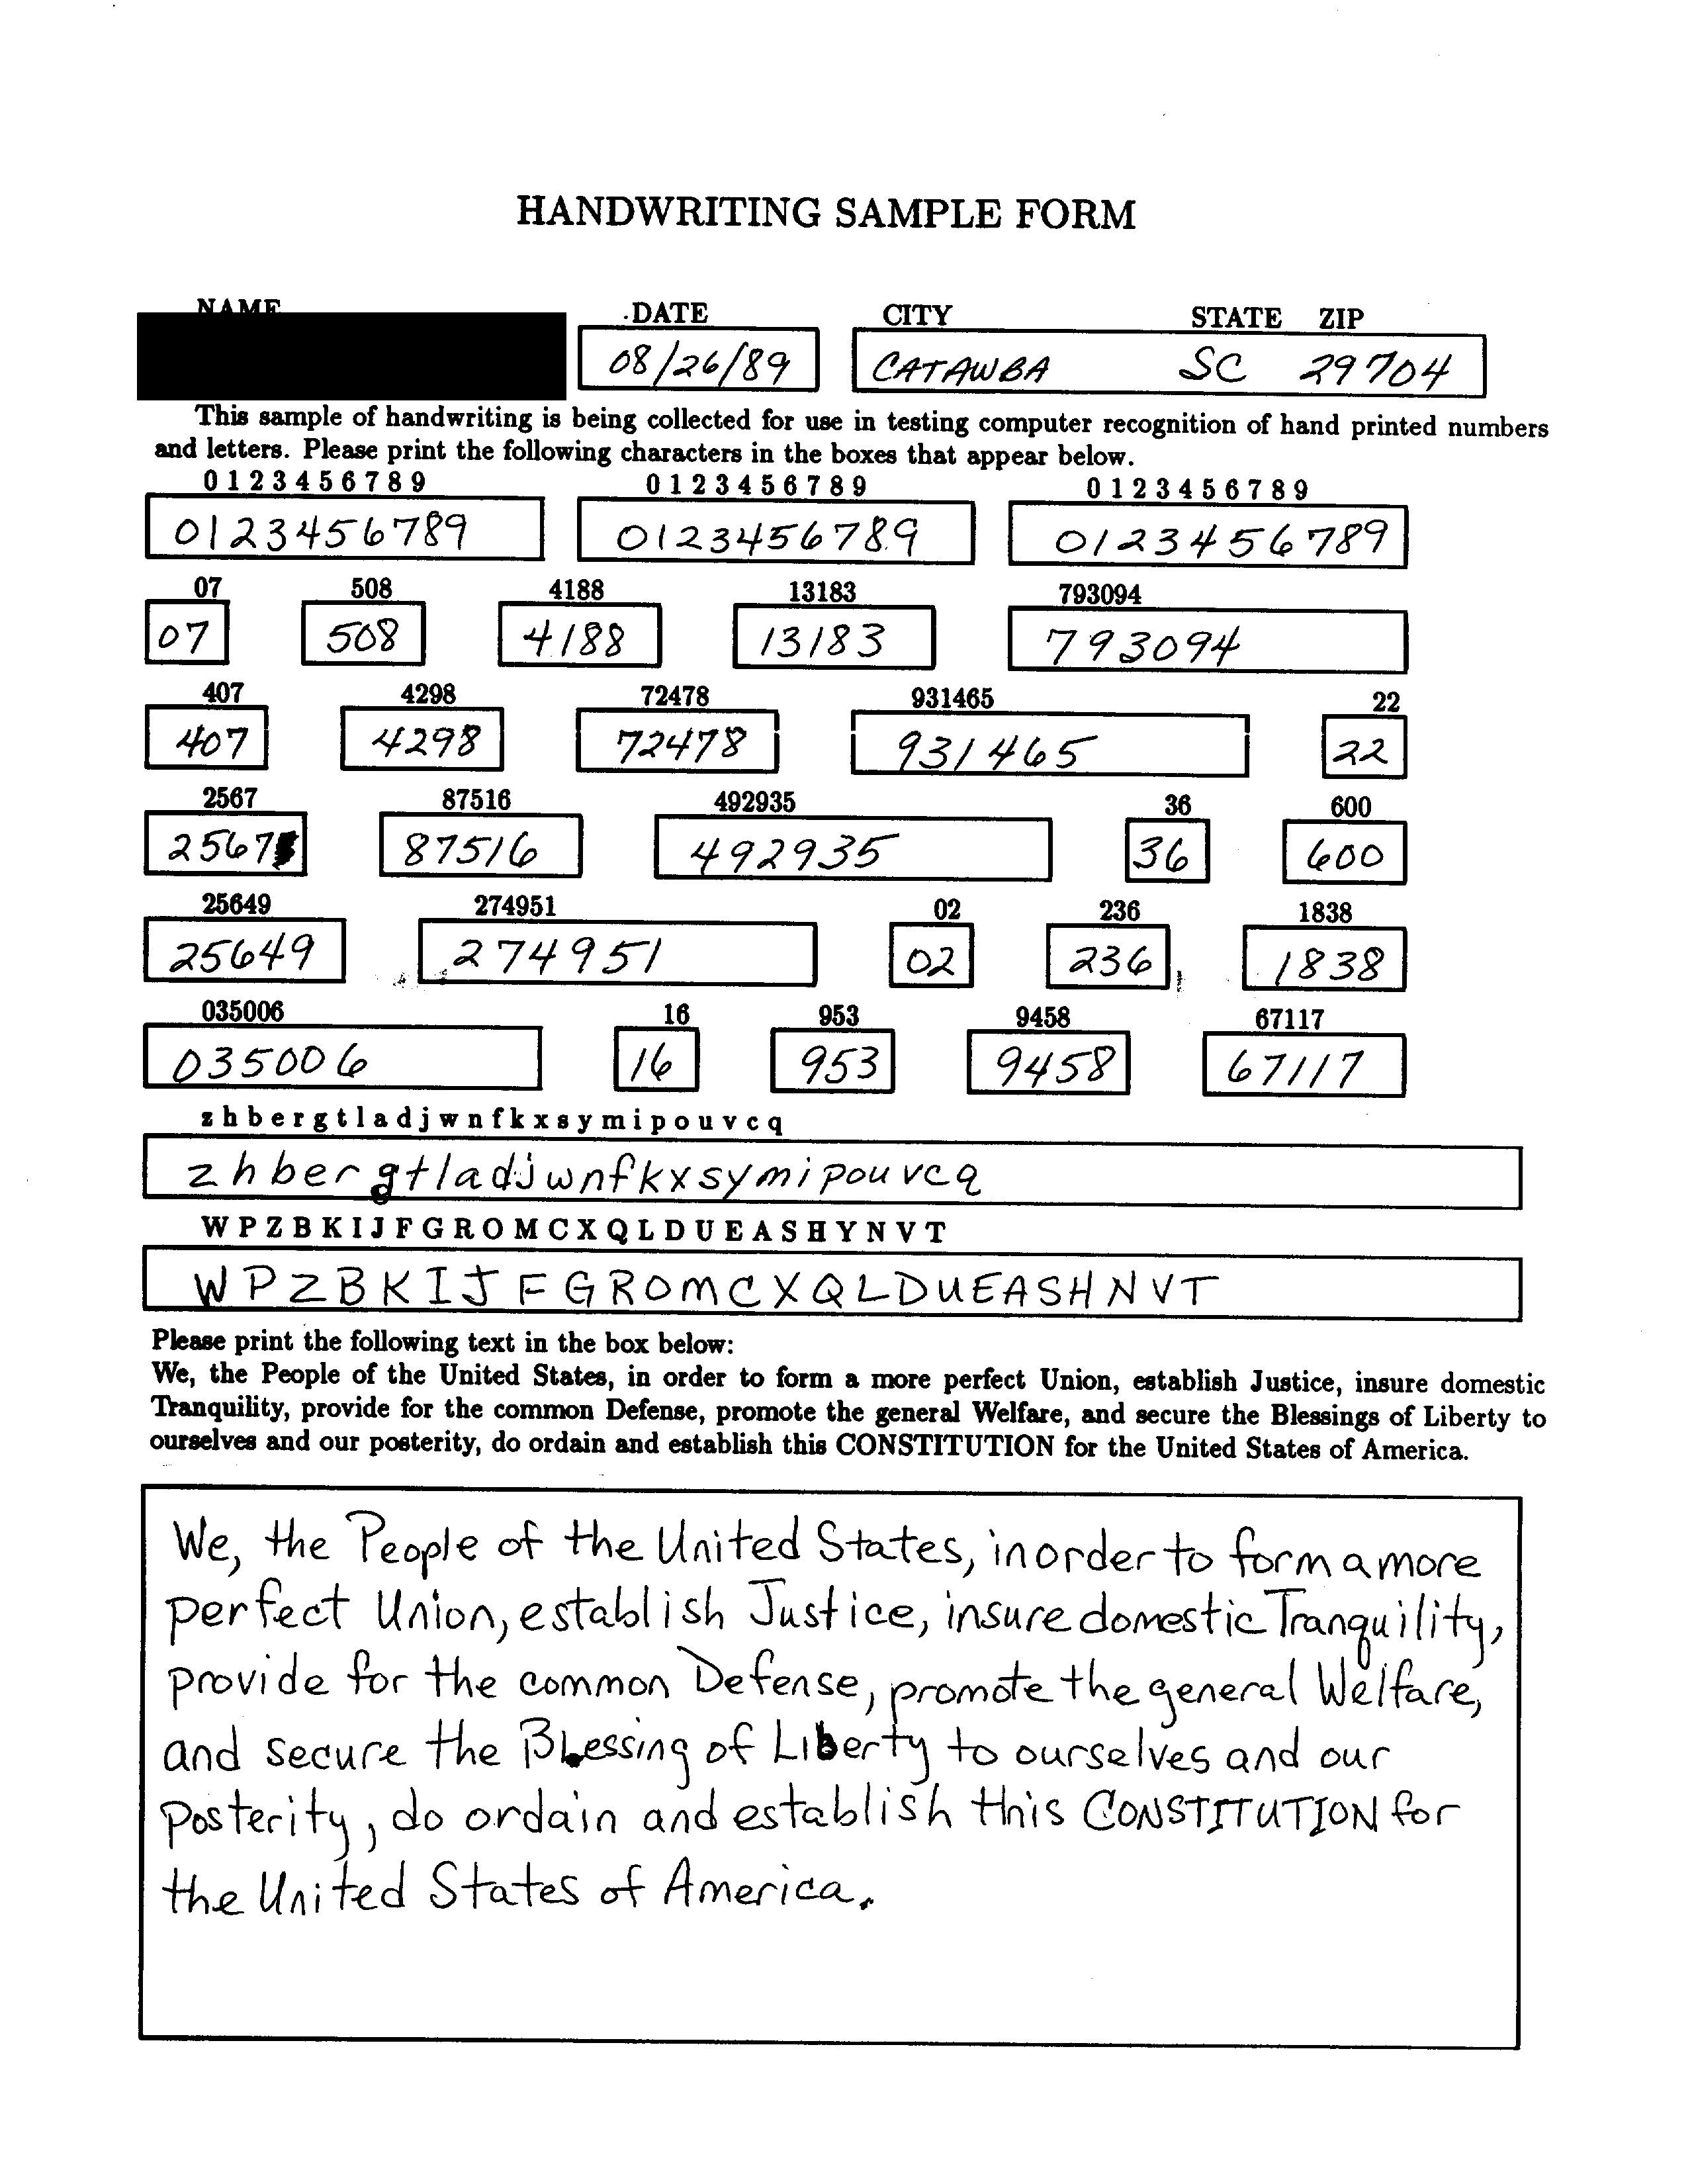 HANDWRITING SAMPLE FORM
NAME DATE CITY STATE ZIP
08/26/89 CATAWBA SC 29704
This sample of handwriting is being collected for use in testing computer recognition of hand printed numbers
and letters. Please print the following characters in the boxes that appear below.
0 1 2 3 4 5 6 7 8 9 0 1 2 3 4 5 6 7 8 9 0 1 2 3 4 5 6 7 8 9
0123456789 0123456789 0123456789
07 508 4188 13183 793094
07 508 4188 13183 793094
407 4298 72478 931465 22
407 4298 72478 931465 22
2567 87516 492935 36 600
2567 87516 492935 36 600
25649 274951 02 236 1838
25649 274951 02 236 1838
035006 16 953 9458 67117
035006 16 953 9458 67117
z h b e r g t l a d j w n f k x s y m i p o u v c q
z h b e r g t l a d j w n f k x s y m i p o u v c q
W P Z B K I J F G R O M C X Q L D U E A S H Y N V T
W P Z B K I J F G R O M C X Q L D U E A S H N V T
Please print the following text in the box below:
We, the People of the United States, in order to form a more perfect Union, establish Justice, insure domestic
Tranquility, provide for the common Defense, promote the general Welfare, and secure the Blessings of Liberty to
ourselves and our posterity, do ordain and establish this CONSTITUTION for the United States of America.
We, the People of the United States, in order to form a more
perfect Union, establish Justice, insure domestic Tranquility,
provide for the common Defense, promote the general Welfare,
and secure the Blessing of Liberty to ourselves and our
posterity, do ordain and establish this CONSTITUTION for
the United States of America.